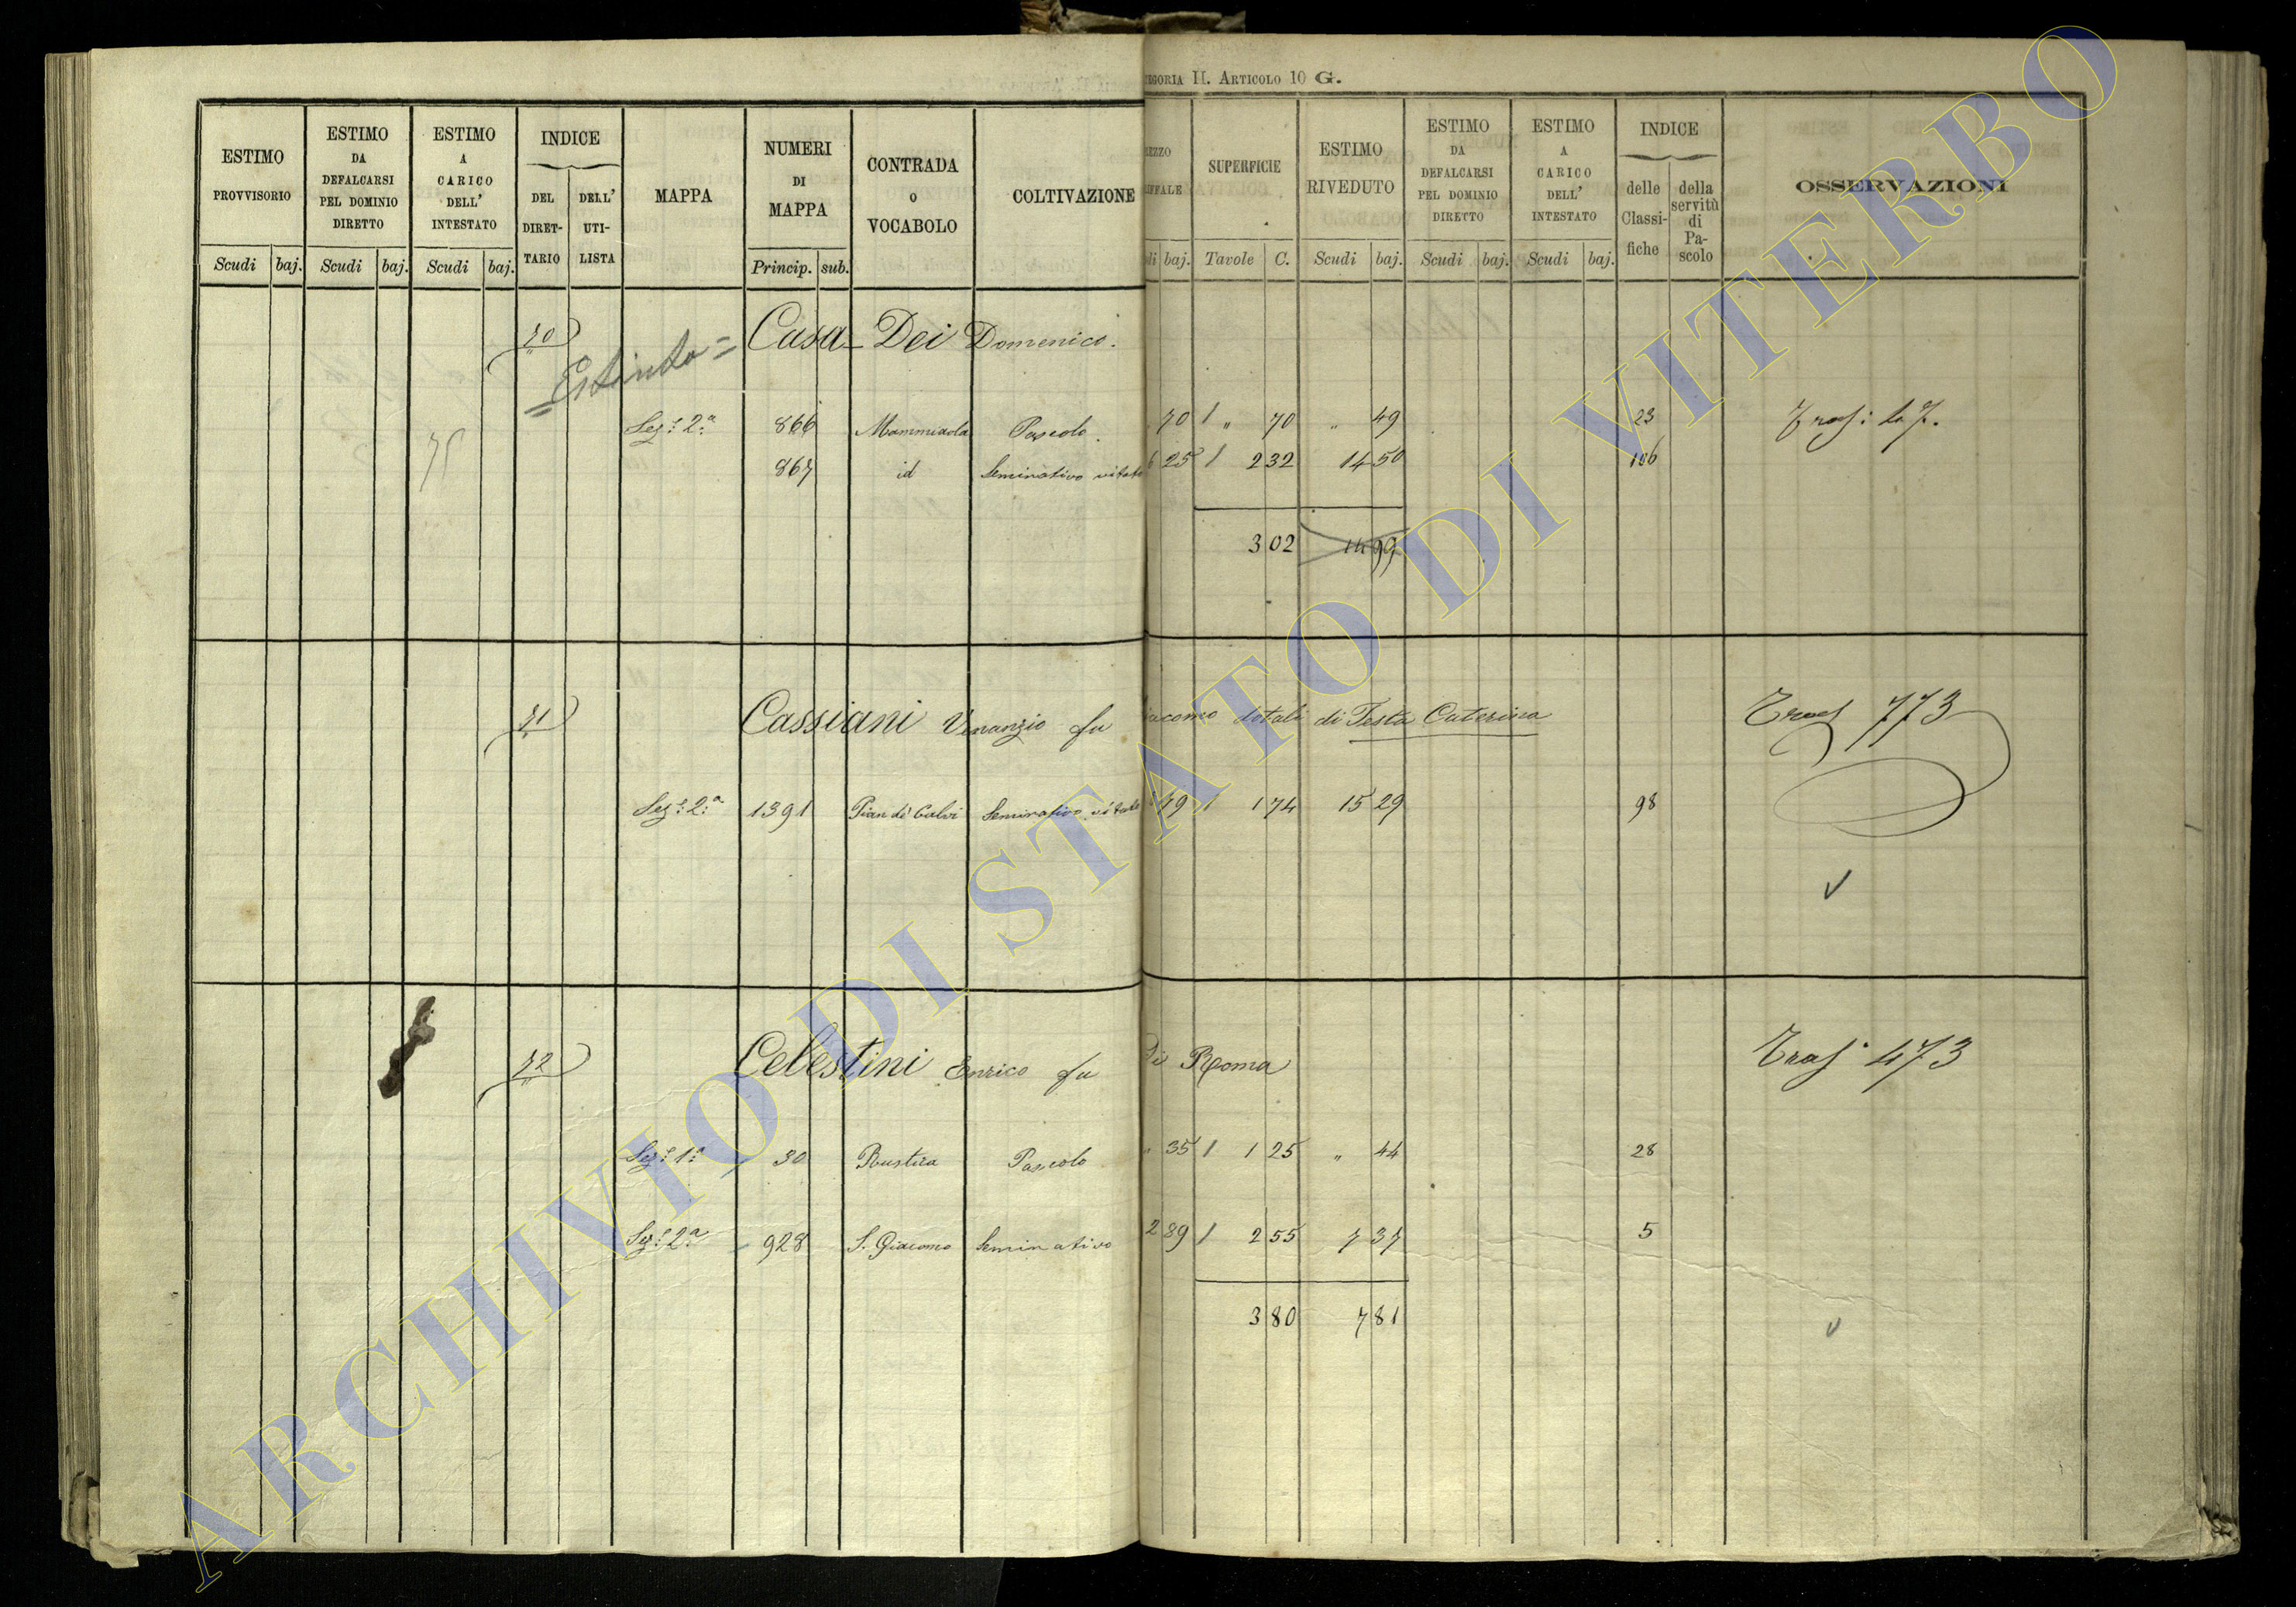 EGORIA II. ARTICOLO 10 G.
ESTIMO PROVVISORIO
ESTIMO DA DEFALCARSI PEL DOMINIO DIRETTO
ESTIMO A CARICO DELL' INTESTATO
INDICE
DEL DIRET-TARIO
DELL' UTI-LISTA
MAPPA
NUMERI DI MAPPA
CONTRADA O VOCABOLO
COLTIVAZIONE
EZZO IFFALE
SUPERFICIE
ESTIMO RIVEDUTO
ESTIMO DA DEFALCARSI PEL DOMINIO DIRETTO
ESTIMO A CARICO DELL' INTESTATO
INDICE
delle Classi-fiche
della servitù di Pa-scolo
OSSERVAZIONI
Scudi baj. Scudi baj. Scudi baj. Princip. sub. di baj. Tavole C. Scudi baj. Scudi baj. Scudi baj.
70 Casa-Dei Domenico.
= Estinto =
Sez.e 2.a 866 Mammiaola Pascolo. 70 1 " 70 " 49 23
75 867 id Seminativo vitato 6 25 1 2 32 14 50 106
3 02 14 99
71 Cassiani Venanzio fu iacomo dotali di Testa Caterina Trasf 773
Sez.e 2.a 1391 Pian de' Calvi Seminativo vitato 49 1 1 74 15 29 98
72 Celestini Enrico fu Di Roma Trasf 473
Sez.e 1.a 30 Rustica Pascolo " 35 1 1 25 " 44 28
Sez.e 2.a 928 S. Giacomo Seminativo 2 89 1 2 55 7 37 5
3 80 7 81
ARCHIVIO DI STATO DI VITERBO